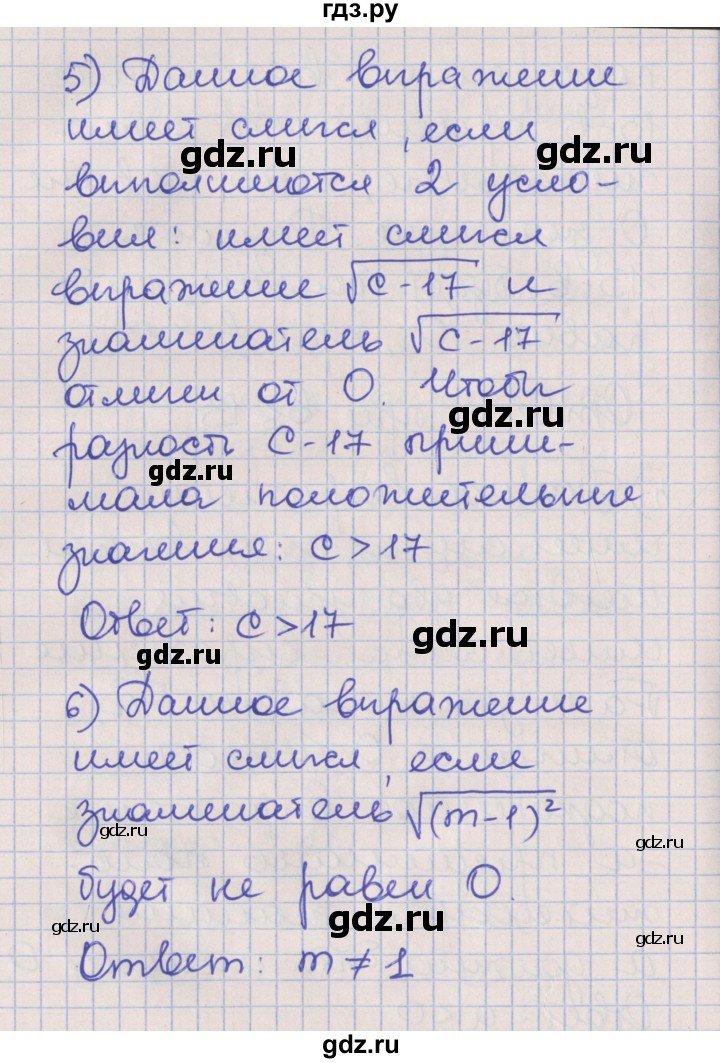 гдз.ру
5) Данное выражение
имеет смысл, если
gdz.ru gdz.ru
выполняются 2 усло-
вия: имеет смысл
gdz.ru
выражение √c-17 и
знаменатель √c-17
отличен от 0. Чтобы
gdz.ru
разность c-17 прини-
gdz.ru
мала положительные
значения: c > 17
Ответ: c > 17
gdz.ru
gdz.ru
6) Данное выражение
имеет смысл, если
знаменатель √(m-1)²
gdz.ru
gdz.ru
будет не равен 0.
gdz.ru gdz.ru gdz.ru
Ответ: m ≠ 1